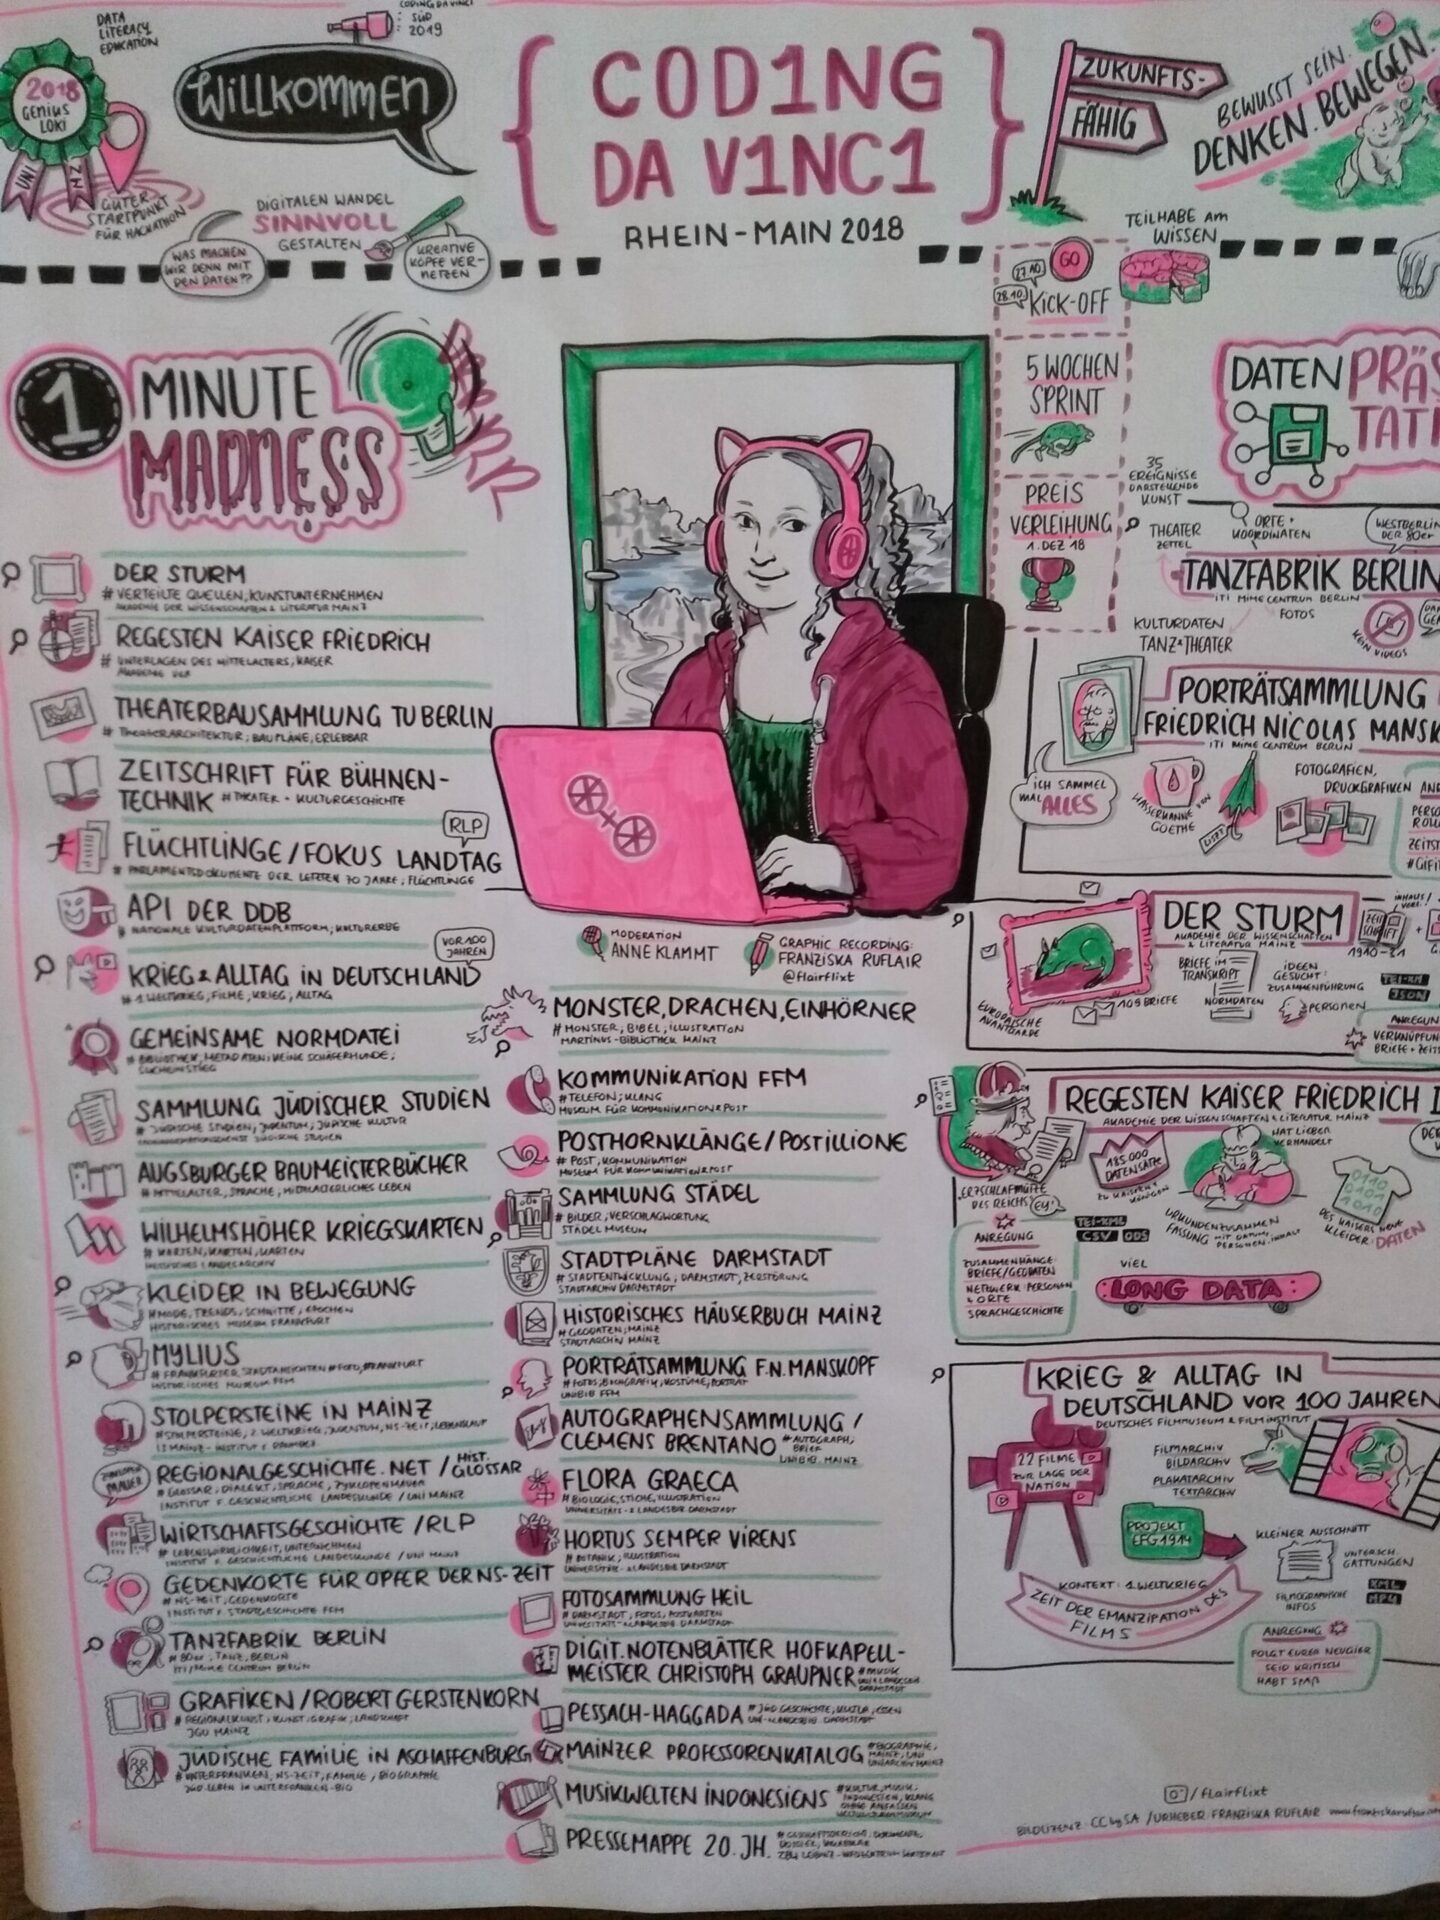 DATA
LITERACY
EDUCATION
CODING DA VINCI
SÜD
2019
2018
GENIUS
LOKI
UNI
MZ
GUTER
STARTPUNKT
FÜR HACKATHON
WILLKOMMEN
DIGITALEN WANDEL
SINNVOLL
GESTALTEN
WAS MACHEN
WIR DENN MIT
DEN DATEN??
KREATIVE
KÖPFE VER-
NETZEN
{ COD1NG
DA V1NC1 }
RHEIN-MAIN 2018
ZUKUNFTS-
FÄHIG
BEWUSST SEIN.
DENKEN. BEWEGEN.
TEILHABE AM
WISSEN
GO
27.10.
28.10.
KICK-OFF
5 WOCHEN
SPRINT
PREIS
VERLEIHUNG
1. DEZ 18
1 MINUTE
MADNESS
DER STURM
# VERTEILTE QUELLEN, KUNSTUNTERNEHMEN
AKADEMIE DER WISSENSCHAFTEN & LITERATUR MAINZ
REGESTEN KAISER FRIEDRICH
# UNTERLAGEN DES MITTELALTERS, KAISER
AKADEMIE DER
THEATERBAUSAMMLUNG TU BERLIN
# THEATERARCHITEKTUR, BAUPLÄNE, ERLEBBAR
ZEITSCHRIFT FÜR BÜHNEN-
TECHNIK # THEATER - KULTURGESCHICHTE
RLP
FLÜCHTLINGE / FOKUS LANDTAG
# PARLAMENTSDOKUMENTE DER LETZTEN 70 JAHRE, FLÜCHTLINGE
API DER DDB
# NATIONALE KULTURDATENPLATTFORM, KULTURERBE
VOR 100
JAHREN
KRIEG & ALLTAG IN DEUTSCHLAND
# 1 WELTKRIEG, FILME, KRIEG, ALLTAG
GEMEINSAME NORMDATEI
# BIBLIOTHEK, METADATEN, KEINE SCHÄFERHUNDE,
SUCHEINSTIEG
SAMMLUNG JÜDISCHER STUDIEN
# JÜDISCHE STUDIEN, JUDENTUM, JÜDISCHE KULTUR
AUGSBURGER BAUMEISTERBÜCHER
# MITTELALTER, SPRACHE, MITTELALTERLICHES LEBEN
WILHELMSHÖHER KRIEGSKARTEN
# KARTEN, KARTEN, KARTEN
HESSISCHES LANDESARCHIV
KLEIDER IN BEWEGUNG
# MODE, TRENDS, SCHNITTE, EPOCHEN
HISTORISCHES MUSEUM FRANKFURT
MYLIUS
# FRANKFURTER STADTANSICHTEN # FOTO, # FRANKFURT
HISTORISCHES MUSEUM FFM
STOLPERSTEINE IN MAINZ
# STOLPERSTEINE, 2 WELTKRIEG, JUDENTUM, NS-ZEIT, LEBENSLAUF
REGIONALGESCHICHTE.NET / HIST. GLOSSAR
# GLOSSAR, DIALEKT, SPRACHE, ZYKLOPENMAUER
INSTITUT F. GESCHICHTLICHE LANDESKUNDE / UNI MAINZ
WIRTSCHAFTSGESCHICHTE / RLP
# LEBENSWIRKLICHKEIT, UNTERNEHMEN
INSTITUT F. GESCHICHTLICHE LANDESKUNDE / UNI MAINZ
GEDENKORTE FÜR OPFER DER NS-ZEIT
# NS-ZEIT, GEDENKORTE
INSTITUT F. STADTGESCHICHTE FFM
TANZFABRIK BERLIN
# 80ER, TANZ, BERLIN
ITI / MIME CENTRUM BERLIN
GRAFIKEN / ROBERT GERSTENKORN
# REGIONALKUNST, KUNST, GRAFIK, LANDSCHAFT
JGU MAINZ
JÜDISCHE FAMILIE IN ASCHAFFENBURG
# UNTERFRANKEN, NS-ZEIT, FAMILIE, BIOGRAPHIE
MODERATION
ANNE KLAMMT
GRAPHIC RECORDING:
FRANZISKA RUFLAIR
@flairflixt
MONSTER, DRACHEN, EINHÖRNER
# MONSTER, BIBEL, ILLUSTRATION
MARTINUS-BIBLIOTHEK MAINZ
KOMMUNIKATION FFM
# TELEFON, KLANG
MUSEUM FÜR KOMMUNIKATION & POST
POSTHORNKLÄNGE / POSTILLIONE
# POST, KOMMUNIKATION
MUSEUM FÜR KOMMUNIKATION & POST
SAMMLUNG STÄDEL
# BILDER, VERSCHLAGWORTUNG
STÄDEL MUSEUM
STADTPLÄNE DARMSTADT
# STADTENTWICKLUNG, DARMSTADT, ZERSTÖRUNG
STADTARCHIV DARMSTADT
HISTORISCHES HÄUSERBUCH MAINZ
# GEODATEN, MAINZ
STADTARCHIV MAINZ
PORTRÄTSAMMLUNG F.N. MANSKOPF
# FOTOS, BIOGRAFIEN, KOSTÜME, PORTRÄT
UNIBIB FFM
AUTOGRAPHENSAMMLUNG /
CLEMENS BRENTANO # AUTOGRAPH,
BRIEF
UNIBIB. MAINZ
FLORA GRAECA
# BIOLOGIE, STICHE, ILLUSTRATION
UNIVERSITÄTS- & LANDESBIB DARMSTADT
HORTUS SEMPER VIRENS
# BOTANIK, ILLUSTRATION
UNIVERSITÄTS- & LANDESBIB DARMSTADT
FOTOSAMMLUNG HEIL
# DARMSTADT, FOTOS, POSTKARTEN
UNIVERSITÄTS- & LANDESBIB DARMSTADT
DIGIT. NOTENBLÄTTER HOFKAPELL-
MEISTER CHRISTOPH GRAUPNER # MUSIK
PESSACH-HAGGADA # JÜD GESCHICHTE, KULTUR, ESSEN
UNI-LANDESBIB DARMSTADT
MAINZER PROFESSORENKATALOG # BIOGRAPHIE,
MAINZ, UNI
UNIARCHIV MAINZ
MUSIKWELTEN INDONESIENS # KULTUR, MUSIK,
INDONESIEN, KLANG
OHNE ANFASSEN
PRESSEMAPPE 20. JH.
DATEN PRÄS
TATI
35
EREIGNISSE
DARSTELLENDE
KUNST
THEATER
ZETTEL
ORTE +
KOORDINATEN
WESTBERLIN
DER 80er
TANZFABRIK BERLIN
ITI MIME CENTRUM BERLIN
FOTOS
KULTURDATEN
TANZ & THEATER
KEIN VIDEOS
PORTRÄTSAMMLUNG
FRIEDRICH NICOLAS MANSK
ITI MIME CENTRUM BERLIN
ICH SAMMEL
MAL ALLES
WASSERKANNE VON
GOETHE
LISZT
FOTOGRAFIEN,
DRUCKGRAFIKEN
DER STURM
AKADEMIE DER WISSENSCHAFTEN
& LITERATUR MAINZ
ZEIT
SCHRIFT
1910-31
BRIEFE IM
TRANSKRIPT
109 BRIEFE
NORMDATEN
IDEEN
GESUCHT:
ZUSAMMENFÜHRUNG
PERSONEN
JSON
EUROPÄISCHE
AVANTGARDE
ANREGUNG
VERKNÜPFUN
BRIEFE + ZEITS
REGESTEN KAISER FRIEDRICH I
AKADEMIE DER WISSENSCHAFTEN & LITERATUR MAINZ
HAT LIEBER
VERHANDELT
185.000
DATENSÄTZE
ZU KAISERN &
KÖNIGEN
ERZSCHLAFMÜTZE
DES REICHS
EY!
TEI-XML
CSV
ODS
URKUNDENZUSAMMEN
FASSUNG MIT DATUM,
PERSONEN, INHALT
0110
0101
1010
DES KAISERS NEUE
KLEIDER: DATEN
ANREGUNG
ZUSAMMENHÄNGE:
BRIEFE/GEODATEN
NETZWERK PERSONEN
& ORTE
SPRACHGESCHICHTE
VIEL
LONG DATA
KRIEG & ALLTAG IN
DEUTSCHLAND VOR 100 JAHREN
DEUTSCHES FILMMUSEUM & FILMINSTITUT
22 FILME
ZUR LAGE DER
NATION
FILMARCHIV
BILDARCHIV
PLAKATARCHIV
TEXTARCHIV
PROJEKT
EFG1914
KLEINER AUSSCHNITT
UNTERSCH.
GATTUNGEN
FILMOGRAPHISCHE
INFOS
XML
MP4
KONTEXT: 1. WELTKRIEG
ZEIT DER EMANZIPATION DES
FILMS
ANREGUNG
FOLGT EURER NEUGIER
SEID KRITISCH
HABT SPAß
/flairflixt
BILDLIZENZ CC by SA / URHEBER FRANZISKA RUFLAIR